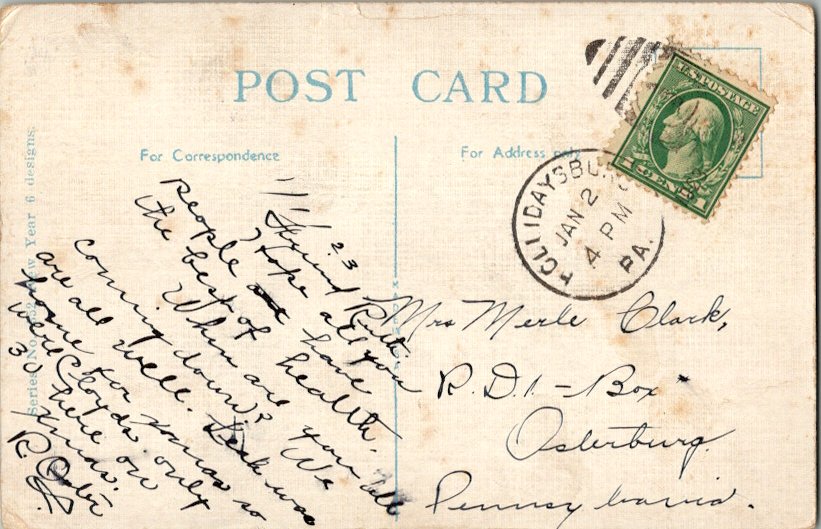 POST CARD
For Correspondence
For Address only
Series No. New Year 6 designs.
U.S. POSTAGE
1 CENT 1
HOLLIDAYSBURG
JAN 2
4 PM
PA.
1/1/23
Friend Ruth.
Hope all you
people are have
the best of health.
When are you all
coming down? We
are all well. Dick was
home for xmas so
were Cloyds only
3 here on
xmas.
R.
Mrs Merle Clark,
R.D.1 - Box
Osterburg
Pennsylvania.